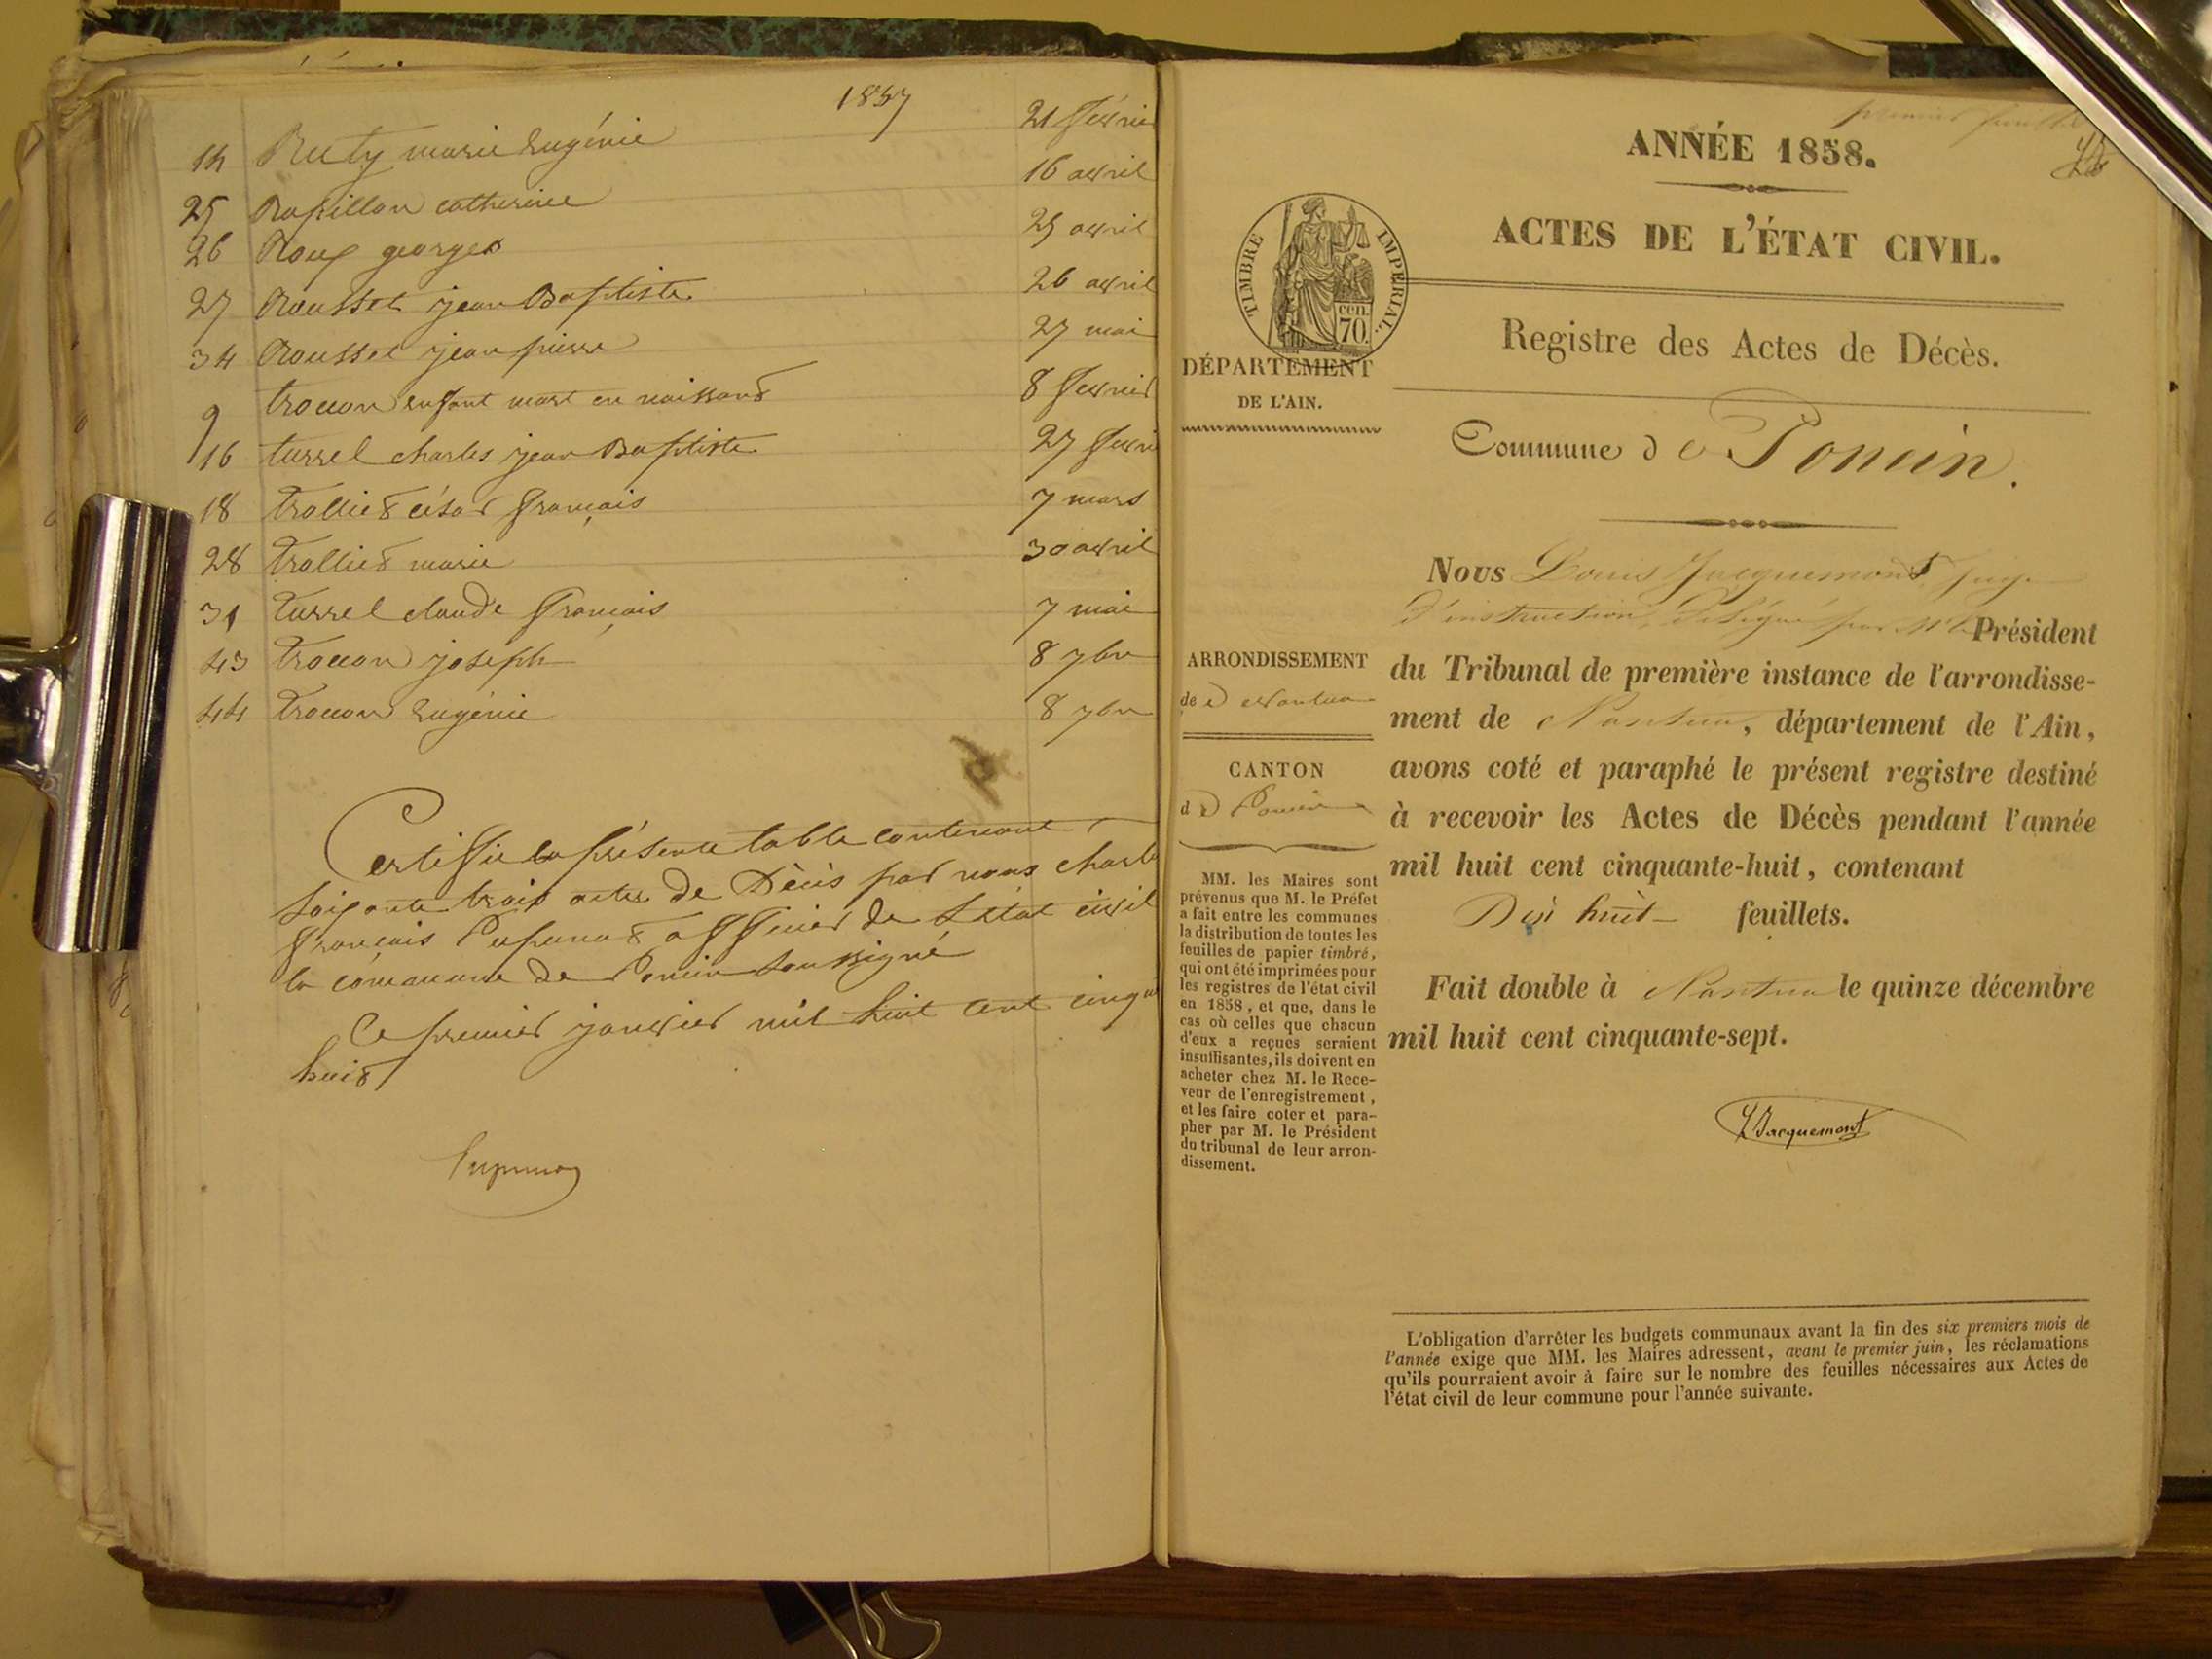 1857
14 Ruty marie Eugénie 21 fevrier
25 Rapillon catherine 16 avril
26 Roux georges 25 avril
27 Rousset jean Baptiste 26 avril
34 Rousset jean pierre 27 mai
9 trocon enfant mort en naissant 8 fevrier
16 turrel charles jean Baptiste 27 fevri
18 trollier césar françois 7 mars
28 trollier marie 30 avril
31 turrel claude françois 7 mai
43 trocon joseph 8 7bre
44 trocon Eugénie 8 7bre
Certifie la présente table contenant
soixante trois actes de Décès par nous charles
françois officier de l'état civil
la commune de Poncin soussigné
Ce premier janvier mil huit cent cinqu
huit
premier feuillet
ANNÉE 1858.
ACTES DE L'ÉTAT CIVIL.
TIMBRE IMPÉRIAL.
cen.
70.
Registre des Actes de Décès.
DÉPARTEMENT
DE L'AIN.
Commune de Poncin.
Nous Louis Jacquemont Juge
d'instruction, délégué par Mr le Président
du Tribunal de première instance de l'arrondisse-
ment de Nantua, département de l'Ain,
avons coté et paraphé le présent registre destiné
à recevoir les Actes de Décès pendant l'année
mil huit cent cinquante-huit, contenant
Dix huit feuillets.
Fait double à Nantua le quinze décembre
mil huit cent cinquante-sept.
LJacquemont
ARRONDISSEMENT
de Nantua
CANTON
de Poncin
MM. les Maires sont
prévenus que M. le Préfet
a fait entre les communes
la distribution de toutes les
feuilles de papier timbré,
qui ont été imprimées pour
les registres de l'état civil
en 1858, et que, dans le
cas où celles que chacun
d'eux a reçues seraient
insuffisantes, ils doivent en
acheter chez M. le Rece-
veur de l'enregistrement,
et les faire coter et para-
pher par M. le Président
du tribunal de leur arron-
dissement.
L'obligation d'arrêter les budgets communaux avant la fin des six premiers mois de
l'année exige que MM. les Maires adressent, avant le premier juin, les réclamations
qu'ils pourraient avoir à faire sur le nombre des feuilles nécessaires aux Actes de
l'état civil de leur commune pour l'année suivante.